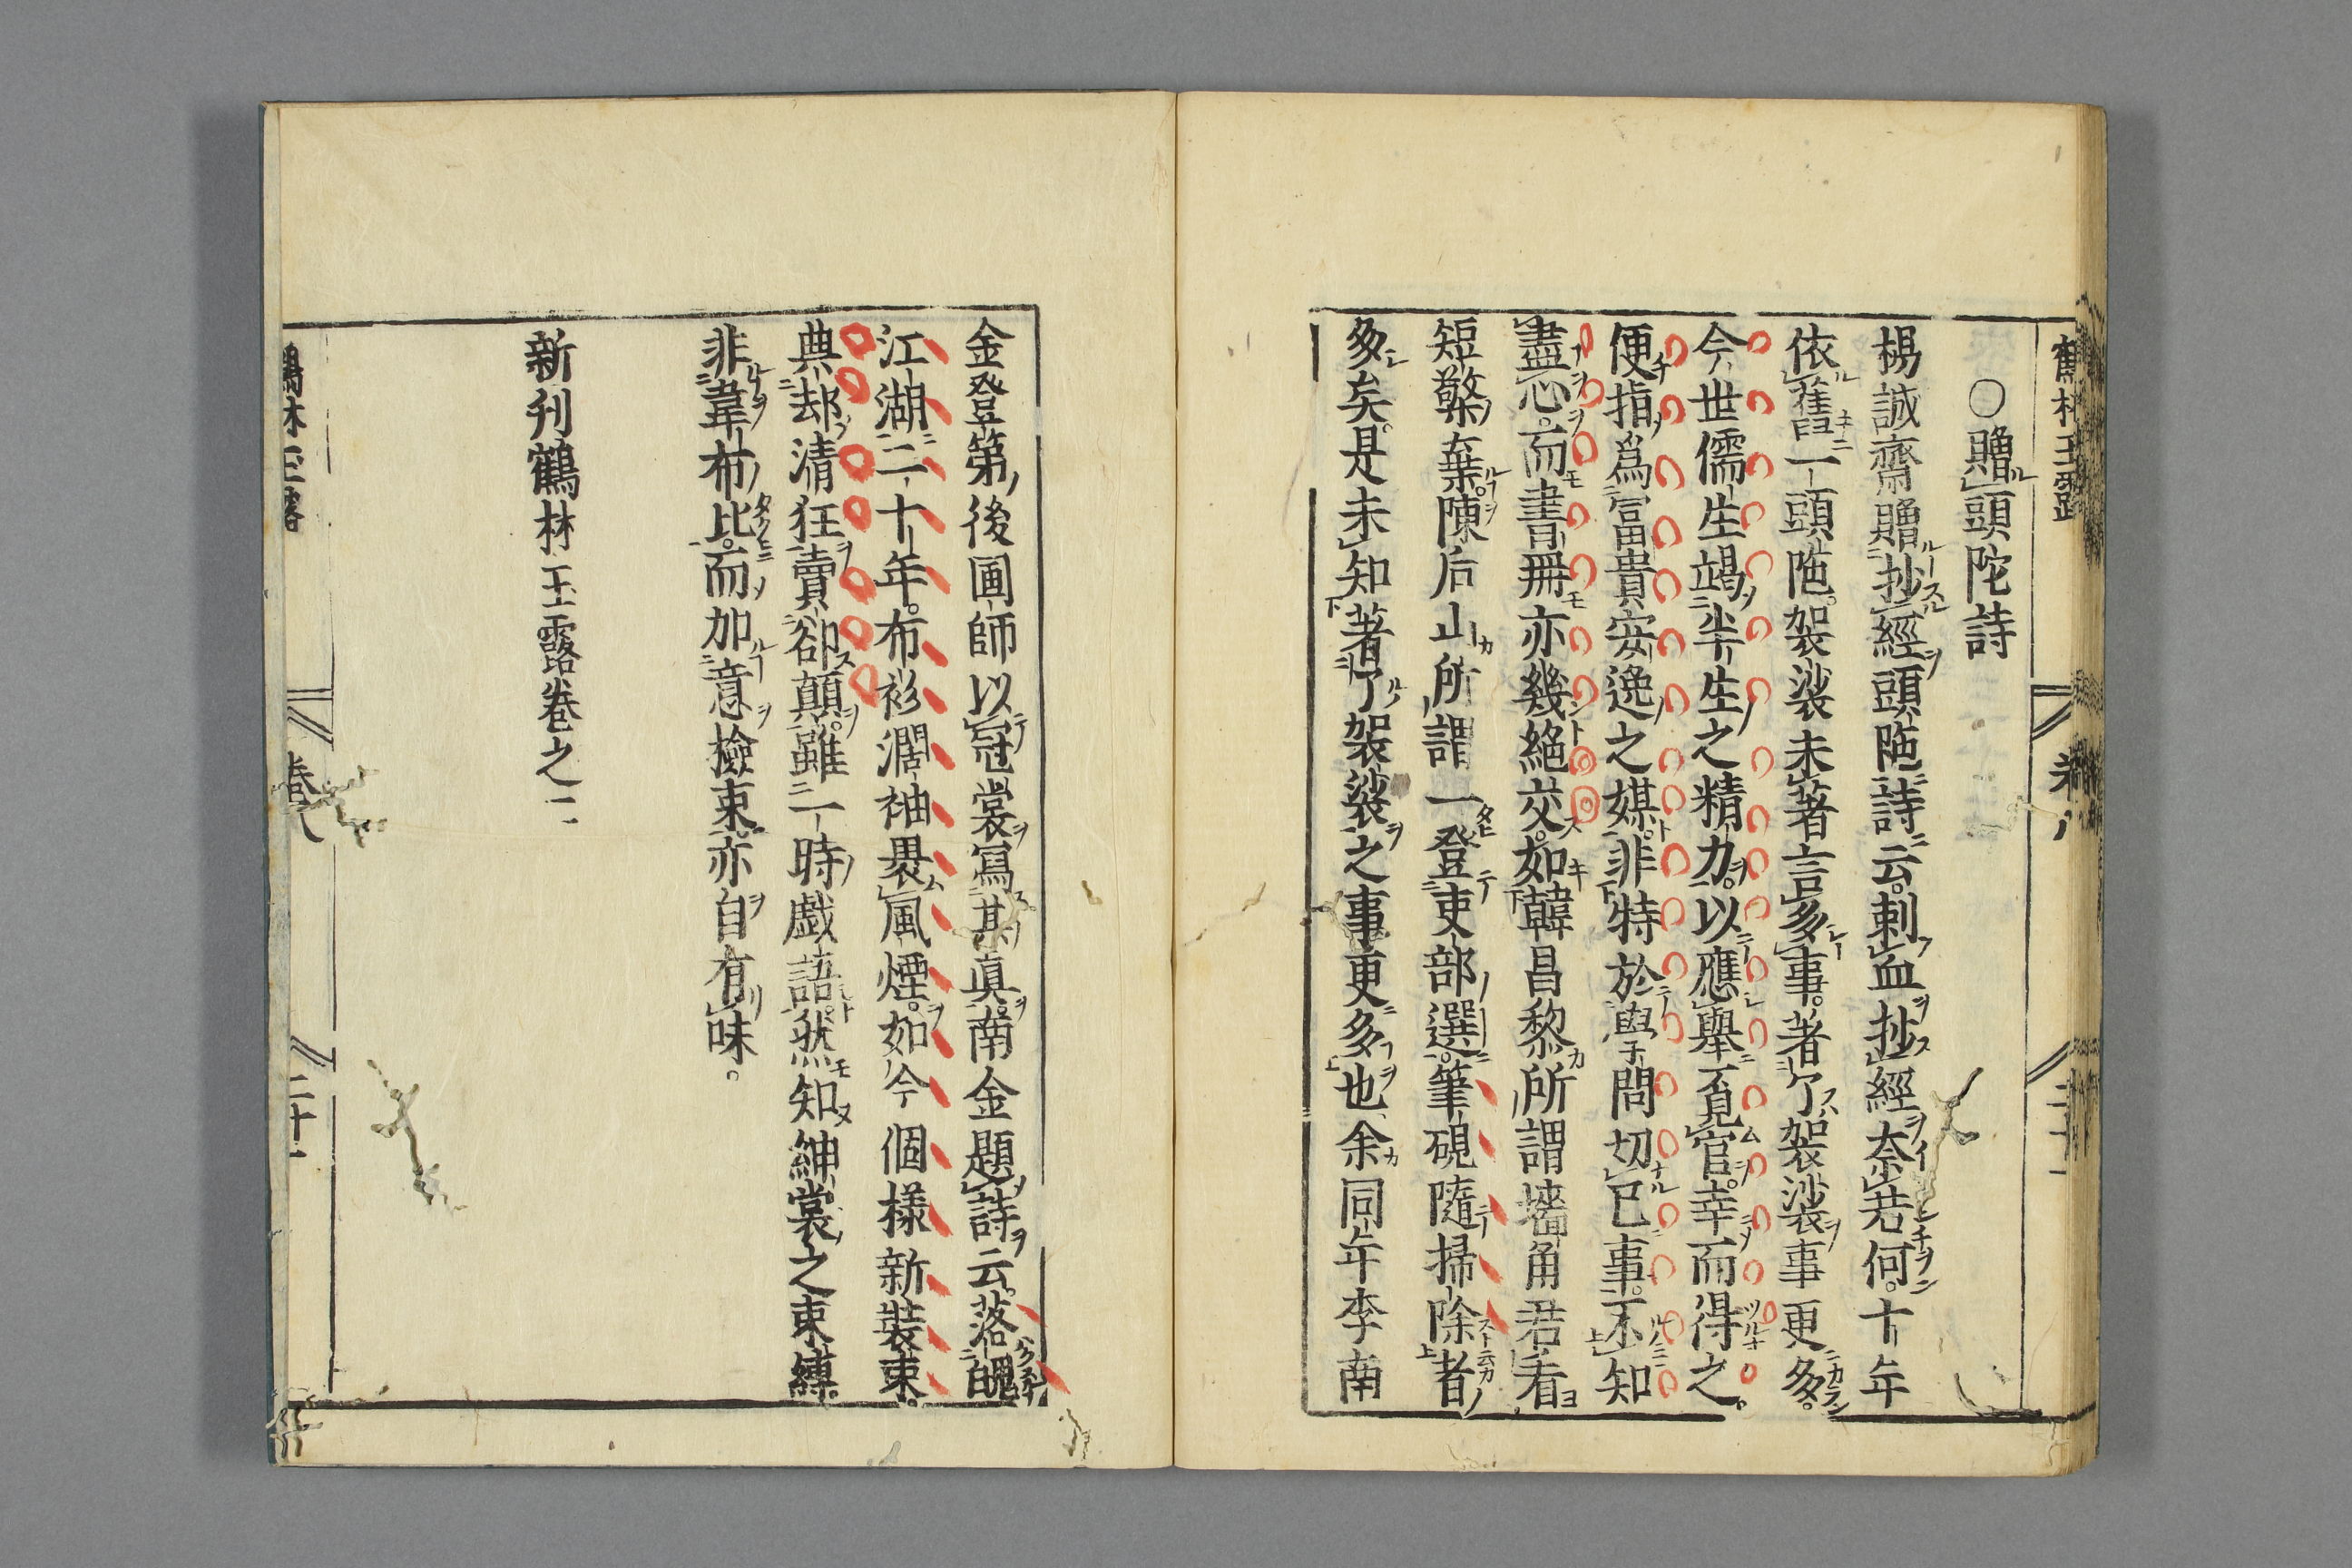 ○贈頭陀詩
楊誠齋贈抄經頭陁詩云。刺血抄經奈若何。十年
依舊一頭陁。袈裟未著言多事。著了袈裟事更多。
今世儒生竭半生之精力。以應舉覓官。幸而得之。
便指爲富貴安逸之媒。非特於學問切已事。不知
盡心。而書冊亦幾絕交。如韓昌黎所謂墻角君看
短檠棄。陳后山所謂一登吏部選。筆硯隨掃除者
多矣。是未知著了袈裟之事更多也、余同年李南
金登第、後畫師以冠裳寫其真。南金題詩云。落魄
江湖二十年。布衫濶袖裹風煙。如今個樣新裝束。
典却清狂賣卻顛。雖一時戯語。然知紳裳之束縛
非韋布比。而加意檢束。亦自有味。
新刊鶴林玉露卷之二
鶴林玉露